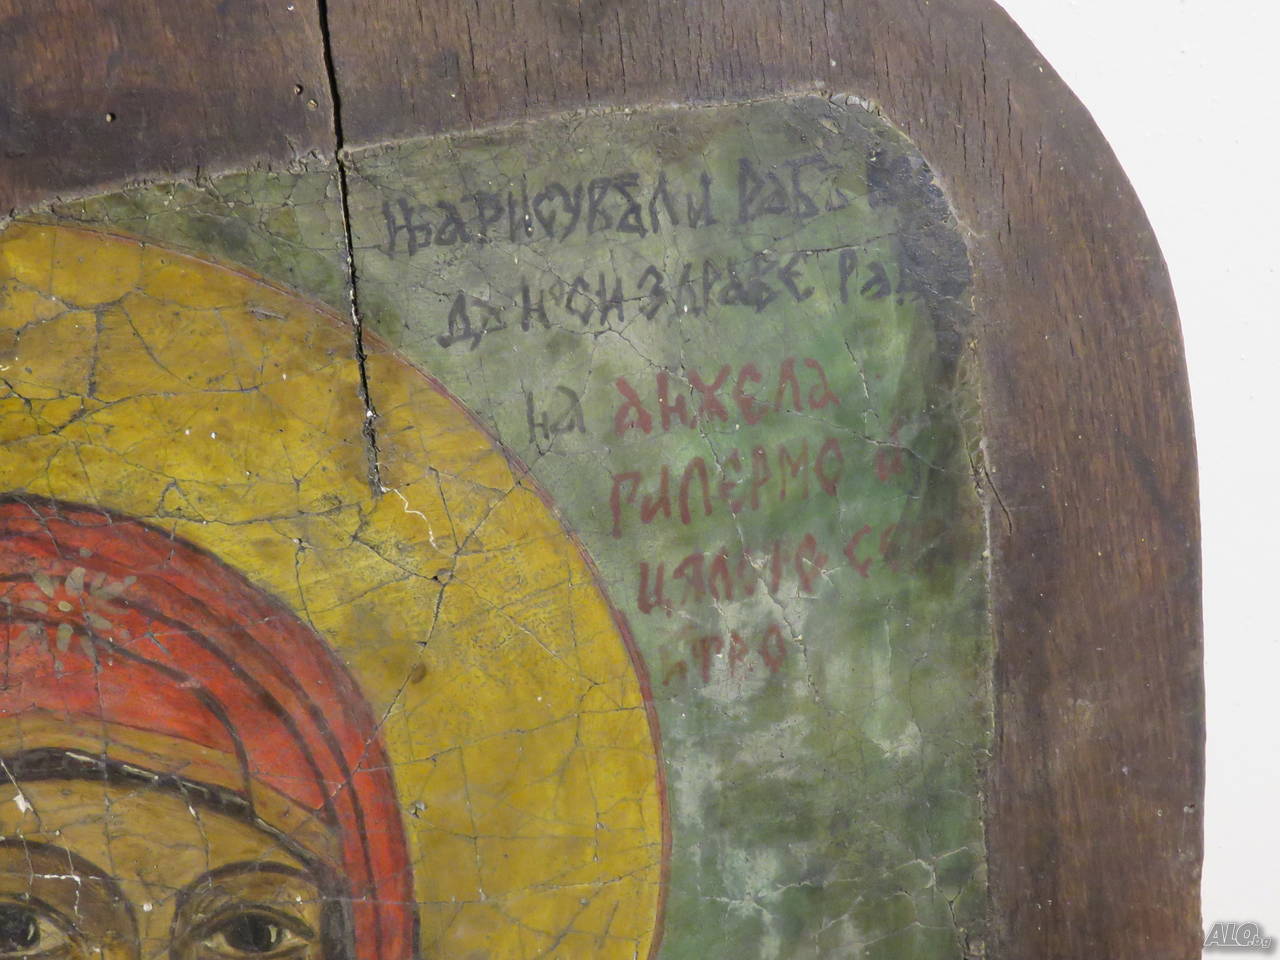 нарисували раба
да носи здраве
на анхела
палермо и
цялото
ALO.bg